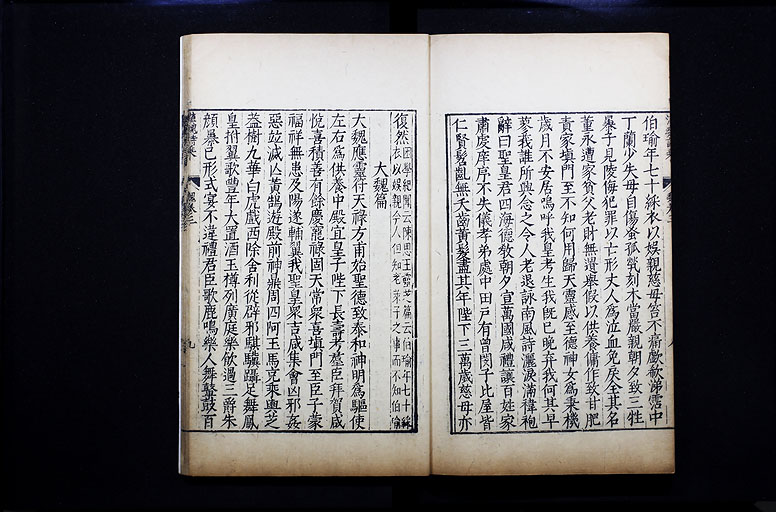 伯瑜年七十綵衣以娛親慈母笞不痛歔欷涕霑巾
丁蘭少失母自傷蚤孤煢刻木當嚴親朝夕致三牲
暴子見陵侮犯罪以亡形丈人為泣血免戾全其名
董永遭家貧父老財無遺舉假以供養傭作致甘肥
責家填門至不知何用歸天靈感至德神女為秉機
歲月不安居嗚呼我皇考生我旣已晚弃我何其早
蓼我誰所興念之令人老退詠南風詩灑淚滿褘袍
辭曰聖皇君四海德敎朝夕宣萬國咸禮讓百姓家
肅虔庠序不失儀孝弟處中田戶有曾閔子比屋皆
仁賢髫齓無夭齒黃髮盡其年陛下三萬歲慈母亦
復然困學紀聞云陳思王靈芝篇云伯瑜年七十綵
衣以娛親今人但知老萊子之事而不知伯瑜
大魏篇
大魏應靈符天祿方甫始聖德致泰和神明為驅使
左右為供養中殿宜皇子陛下長壽考羣臣拜賀咸
悅喜積善有餘慶寵祿固天常衆喜填門至臣子蒙
福祥無患及陽遂輔翼我聖皇衆吉咸集會凶邪姦
惡並滅亾黃鵠遊殿前神鼎周四阿玉馬充乘輿芝
蓋樹九華白虎戲西除舍利從辟邪騏驥躡足舞鳳
皇拊翼歌豐年大置酒玉樽列廣庭樂飲過三爵朱
顏暴己形式宴不違禮君臣歌鹿鳴樂人舞鼙鼓百